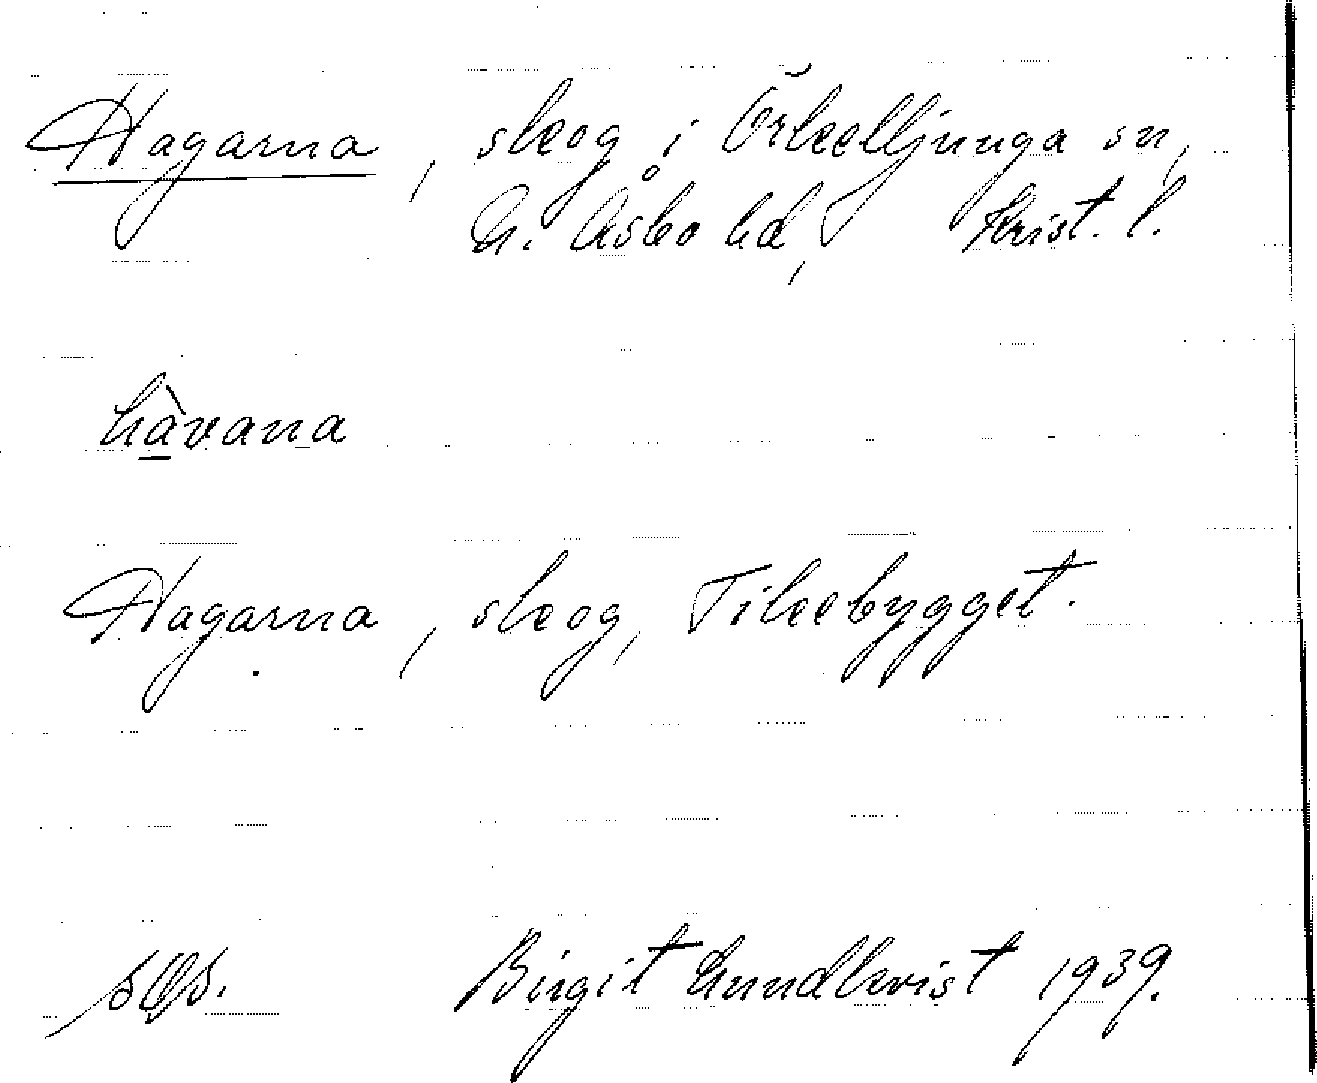 Hagarna, skog i Örkelljunga sn,
N. Åsbo hd, Krist. l.
hàvana
Hagarna, skog, Tikebygget.
Birgit Lundkvist 1939.